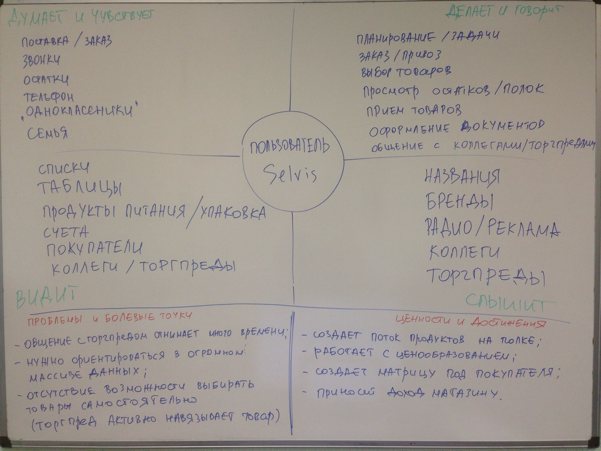 ДУМАЕТ И ЧУВСТВУЕТ
ПОСТАВКА / ЗАКАЗ
ЗВОНКИ
ОСТАТКИ
ТЕЛЕФОН
"ОДНОКЛАССНИКИ"
СЕМЬЯ
ДЕЛАЕТ И ГОВОРИТ
ПЛАНИРОВАНИЕ / ЗАДАЧИ
ЗАКАЗ / ПРИВОЗ
ВЫБОР ТОВАРОВ
ПРОСМОТР ОСТАТКОВ / ПОЛОК
ПРИЕМ ТОВАРОВ
ОФОРМЛЕНИЕ ДОКУМЕНТОВ
ОБЩЕНИЕ С КОЛЛЕГАМИ/ТОРГПРЕДАМИ
ПОЛЬЗОВАТЕЛЬ
Selvis
СПИСКИ
ТАБЛИЦЫ
ПРОДУКТЫ ПИТАНИЯ / УПАКОВКА
СЧЕТА
ПОКУПАТЕЛИ
КОЛЛЕГИ / ТОРГПРЕДЫ
ВИДИТ
НАЗВАНИЯ
БРЕНДЫ
РАДИО / РЕКЛАМА
КОЛЛЕГИ
ТОРГПРЕДЫ
СЛЫШИТ
ПРОБЛЕМЫ И БОЛЕВЫЕ ТОЧКИ
- ОБЩЕНИЕ С ТОРГПРЕДОМ ОТНИМАЕТ МНОГО ВРЕМЕНИ;
- НУЖНО ОРИЕНТИРОВАТЬСЯ В ОГРОМНОМ
МАССИВЕ ДАННЫХ;
- ОТСУТСТВИЕ ВОЗМОЖНОСТИ ВЫБИРАТЬ
ТОВАРЫ САМОСТОЯТЕЛЬНО
(ТОРГПРЕД АКТИВНО НАВЯЗЫВАЕТ ТОВАР)
ЦЕННОСТИ И ДОСТИЖЕНИЯ
- СОЗДАЕТ ПОТОК ПРОДУКТОВ НА ПОЛКЕ;
- РАБОТАЕТ С ЦЕНООБРАЗОВАНИЕМ;
- СОЗДАЕТ МАТРИЦУ ПОД ПОКУПАТЕЛЯ;
- ПРИНОСИТ ДОХОД МАГАЗИНУ.